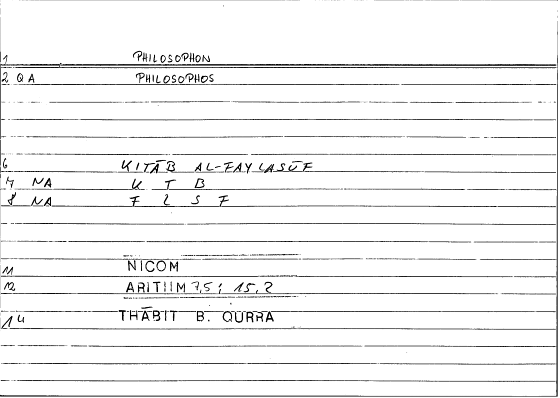 1 PHILOSOPHON
2 QA PHILOSOPHOS
6 KITĀB AL-FAYLASŪF
7 NA K T B
8 NA F L S F
11 NICOM
12 ARITHM 7,5; 15,2
14 THĀBIT B. QURRA